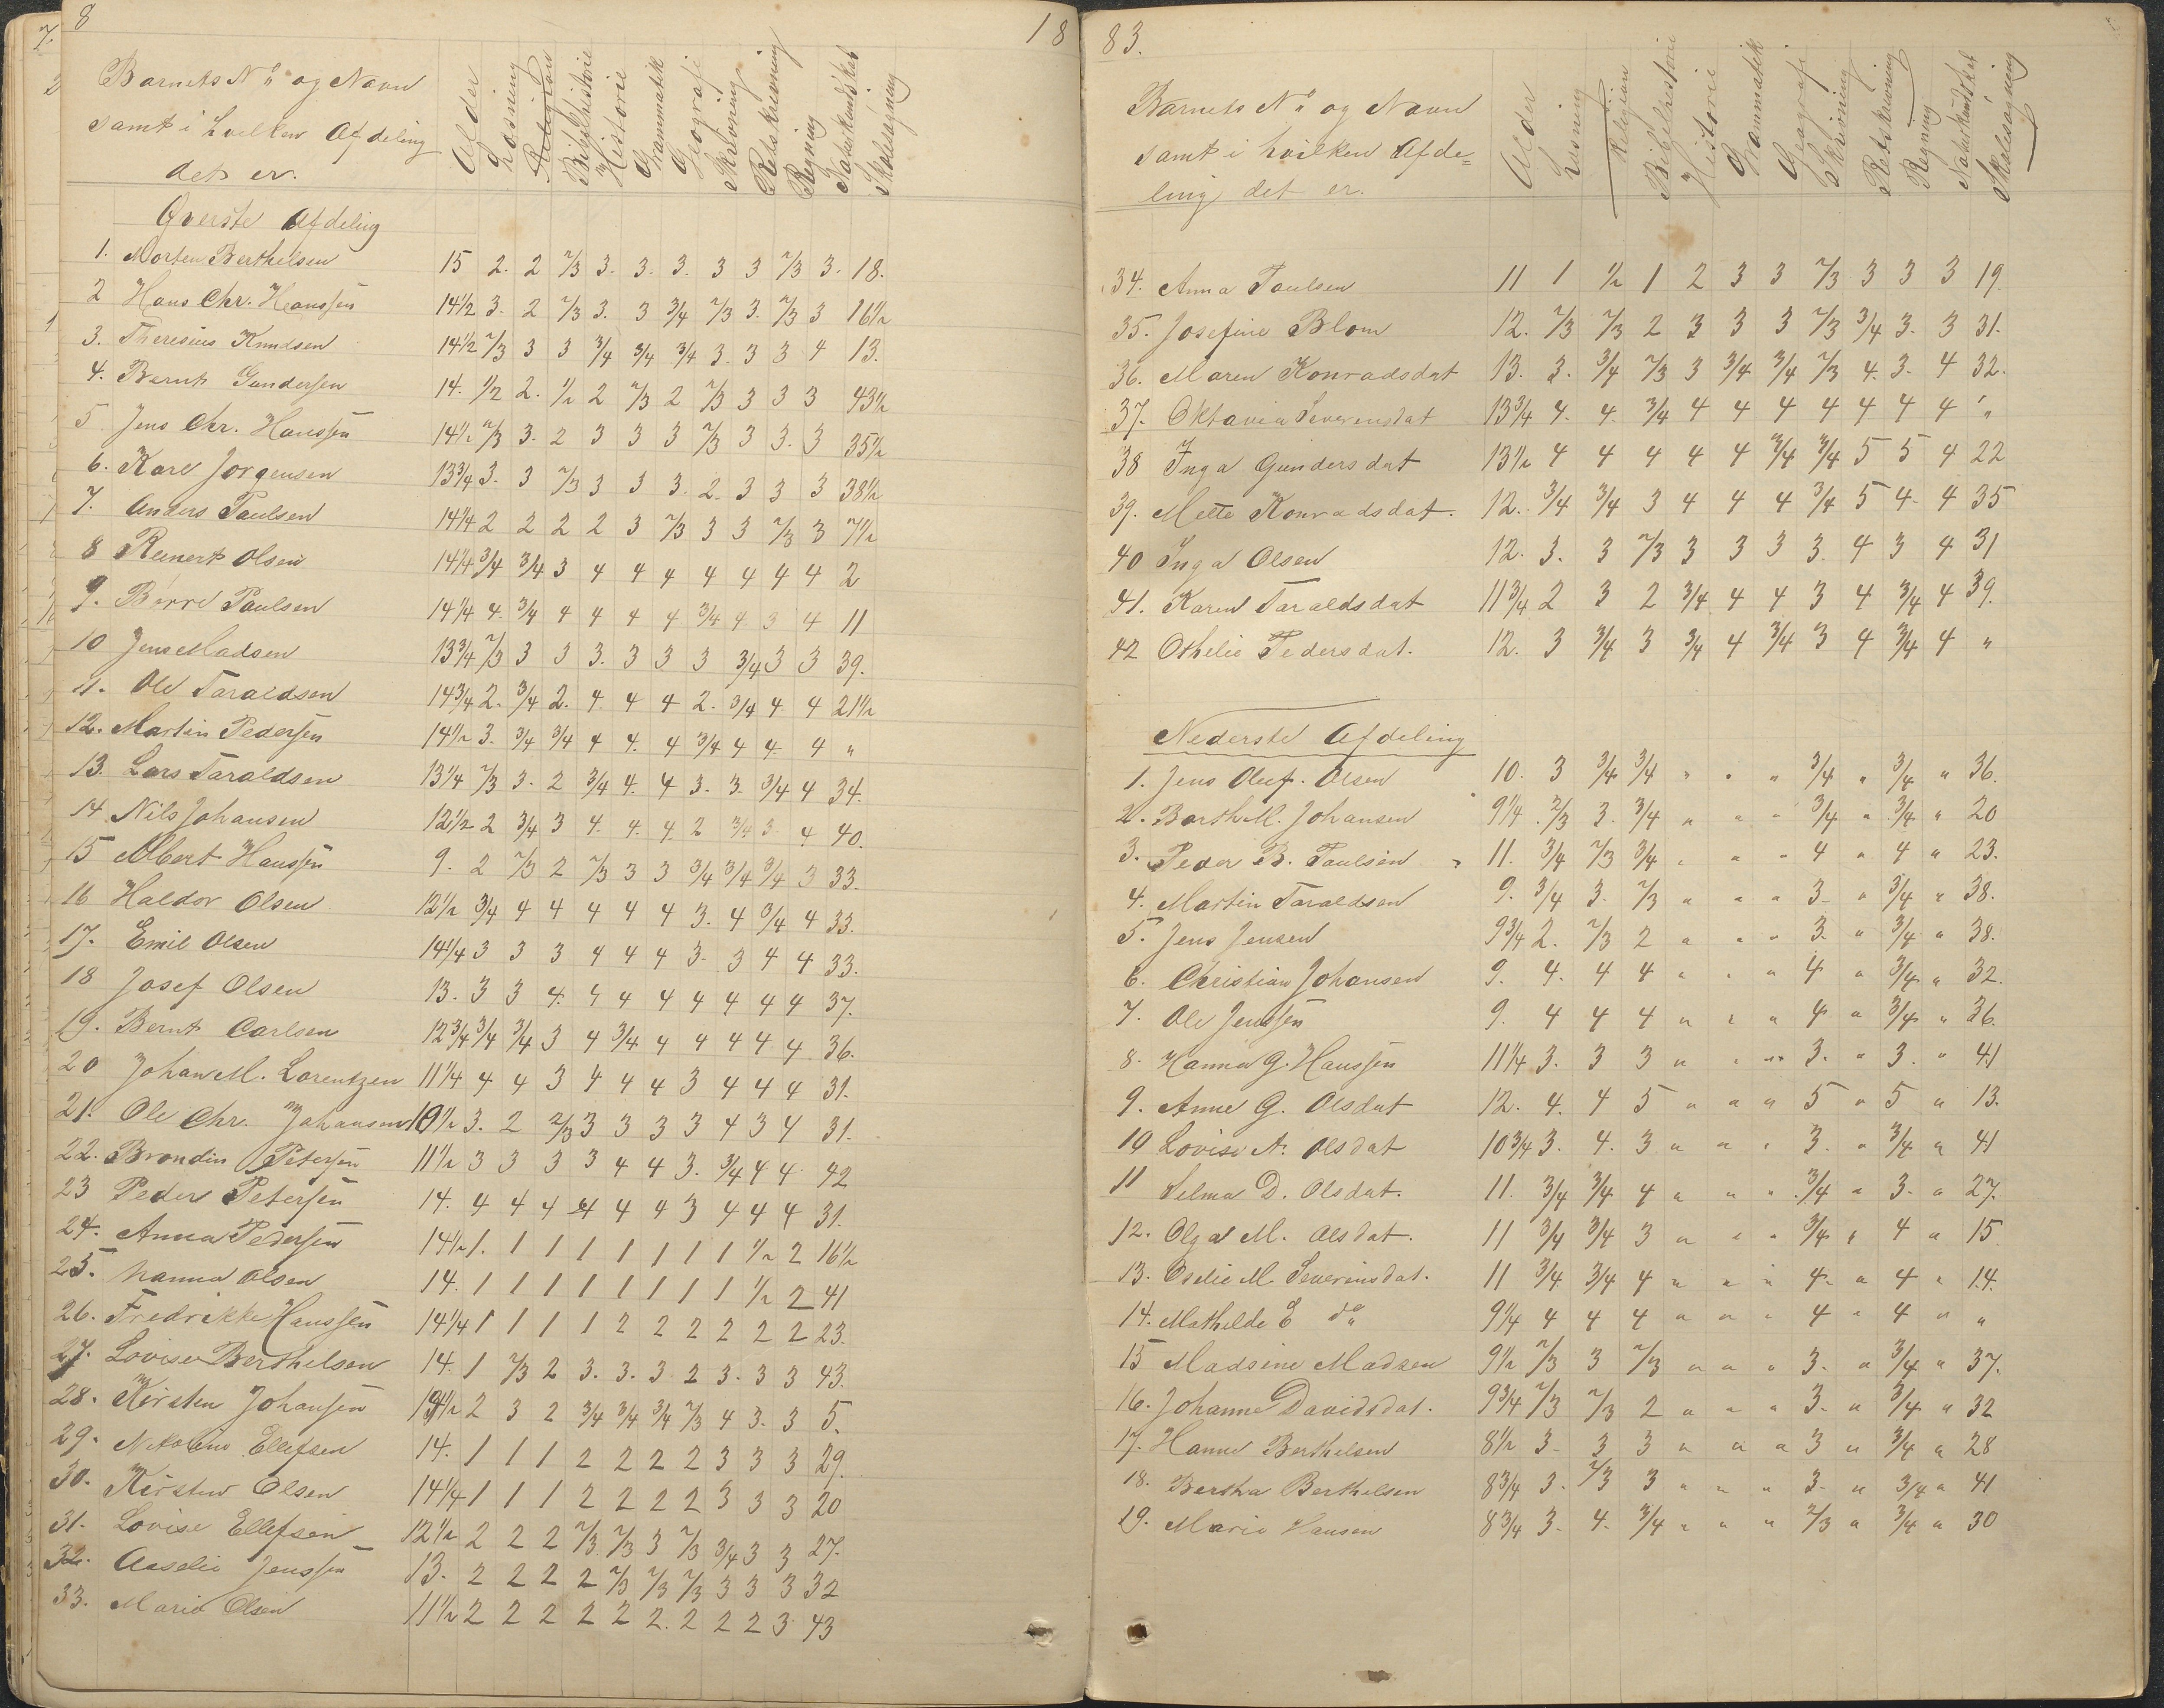 8 18
Barnets No og Navn
samt i hvilken Afdeling
det er.
Alder Læsning Religion Bibelhistorie Historie Grammatik Geografi Skrivning Retskrivning Regning Naturkundskab Skolesøgning
Øverste Afdeling
1. Morten Berthelsen 15 2. 2 2/3 3. 3. 3. 3 3 2/3 3. 18.
2 Hans Chr. Hanssen 14 1/2 3. 2 2/3 3. 3 3/4 2/3 3. 2/3 3 16 1/2
3. Theresius Knudsen 14 1/2 2/3 3 3 3/4 3/4 3/4 3. 3 3 4 13.
4. Bernt Gundersen 14. 1/2 2. 1/2 2 2/3 2 2/3 3 3 3 43 1/2
5 Jens Chr. Hanssen 14 1/2 2/3 3. 2 3 3 3 2/3 3 3. 3 35 1/2
6. Karl Jørgensen 13 3/4 3. 3 2/3 3 3 3. 2. 3 3 3 38 1/2
7. Anders Paulsen 14 1/4 2 2 2 2 3 2/3 3 3 2/3 3 7 1/2
8 Reinert Olsen 14 1/4 3/4 3/4 3 4 4 4 4 4 4 4 2
9. Børre Paulsen 14 1/4 4. 3/4 4 4 4 4 3/4 4 3 4 11
10 Jens Madsen 13 3/4 2/3 3 3 3. 3 3 3 3/4 3 3 39.
11. Ole Taraldsen 14 3/4 2. 3/4 2. 4. 4 4 2. 3/4 4 4 21 1/2
12. Martin Pedersen 14 1/2 3. 3/4 3/4 4 4. 4 3/4 4 4. 4 "
13. Lars Taraldsen 13 1/4 2/3 3. 2 3/4 4. 4 3. 3. 3/4 4 34.
14 Nils Johansen 12 1/2 2 3/4 3 4. 4. 4. 2 3/4 3. 4 40.
15 Albert Hanssen 9. 2 2/3 2 2/3 3 3 3/4 3/4 3/4 3 33.
16 Haldor Olsen 12 1/2 3/4 4 4 4 4 4 3. 4 3/4 4 33.
17. Emil Olsen 14 1/4 3 3 3 4 4 4 3. 3 4 4 33.
18 Josef Olsen 13. 3 3 4. 4 4 4 4 4 4 4 37.
19. Bernt Carlsen 12 3/4 3/4 3/4 3 4 3/4 4 4 4 4 4 36.
20 Johan M. Lorentzen 11 1/4 4 4 3 4 4 4 3 4 4 4 31.
21. Ole Chr. Johansen 10 1/2 3. 2 2/3 3 3 3 3 4 3 4 31.
22. Brondin Petersen 11 1/2 3 3 3 3 4 4 3. 3/4 4 4. 42
23 Peder Petersen 14. 4 4 4 4 4 4 3 4 4 4 31.
24. Anna Pedersen 14 1/2 1. 1 1 1 1 1 1 1 1/2 2 16 1/2
25. Hanna Olsen 14. 1 1 1 1 1 1 1 1 1/2 2 41
26. Fredrikke Hanssen 14 1/4 1 1 1 1 2 2 2 2 2 2 23.
27. Lovise Berthelsen 14. 1 2/3 2 3. 3. 3 2 3. 3 3 43.
28. Kirsten Johansen 14 1/2 2 3 2 3/4 3/4 3/4 2/3 4 3. 3 5.
29. Nikoline Ellefsen 14. 1 1 1 2 2 2 2 3 3 3 29.
30. Kirstine Olsen 14 1/4 1 1 1 2 2 2 2 3 3 3 20
31. Lovise Ellefsen 12 1/2 2 2 2 2/3 2/3 3 2/3 3/4 3 3 27.
32. Aaselie Jenssen 13. 2 2 2 2 2/3 2/3 2/3 3 3 3 32
33. Marie Olsen 11 1/2 2 2 2 2 2 2. 2 2 2 3 43
83.
Barnets No og Navn
samt i hvilken Afde=
ling det er.
Alder Læsning Religion Bibelhistorie Historie Grammatik Geografi Skrivning Retskrivning Regning Naturkundskab Skolesøgning
34. Anna Paulsen 11 1 1/2 1 2 3 3 2/3 3 3 3 19.
35. Josefine Blom 12. 2/3 2/3 2 3 3 3 2/3 3/4 3. 3 31.
36. Maren Konradsdat 13. 3. 3/4 2/3 3 3/4 3/4 2/3 4. 3. 4 32.
37. Oktavia Severinsdat 13 3/4 4. 4. 3/4 4 4 4 4 4 4 4 "
38 Inga Gundersdat 13 1/2 4 4 4 4 4 3/4 3/4 5 5 4 22
39. Mette Konradsdat. 12. 3/4 3/4 3 4 4 4 3/4 5 4 4 35
40 Inga Olsen 12. 3. 3 2/3 3 3 3 3. 4 3 4 31
41. Karen Taraldsdat 11 3/4 2 3 2 3/4 4 4 3 4 3/4 4 39.
42 Othelie Pedersdat. 12. 3 3/4 3 3/4 4 3/4 3 4 3/4 4 "
Nederste Afdeling
1. Jens Oluf. Olsen 10. 3 3/4 3/4 " " " 3/4 " 3/4 " 36.
2. Barth M. Johansen 9 1/4 2/3 3. 3/4 " " " 3/4 " 3/4 " 20
3. Peder B. Paulsen 11. 3/4 2/3 3/4 " " " 4 " 4 " 23.
4. Martin Taraldsen 9. 3/4 3. 2/3 " " " 3. " 3/4 " 38.
5. Jens Jensen 9 3/4 2. 2/3 2 " " " 3. " 3/4 " 38.
6. Christian Johansen 9. 4. 4 4 " " " 4 " 3/4 " 32.
7. Ole Jenssen 9. 4 4 4 " " " 4 " 3/4 " 36.
8. Hanna G. Hanssen 11 1/4 3. 3 3 " " " 3. " 3. " 41
9. Anne G. Olsdat 12. 4. 4 5 " " " 5 " 5 " 13.
10 Lovise A. Olsdat 10 3/4 3. 4. 3 " " " 3. " 3/4 " 41
11 Selma D. Olsdat. 11. 3/4 3/4 4 " " " 3/4 " 3. " 27.
12. Olga M. Olsdat. 11 3/4 3/4 3 " " " 3/4 " 4 " 15
13. Oselie M. Severinsdat. 11 3/4 3/4 4 " " " 4. " 4 " 14.
14. Mathilde E do 9 1/4 4 4 4 " " " 4 " 4 " "
15 Madsine Madsen 9 1/2 2/3 3 2/3 " " " 3. " 3/4 " 37.
16. Johanne Davidsdat. 9 3/4 2/3 2/3 2 " " " 3. " 3/4 " 32
17. Hanne Berthelsen 8 1/2 3. 3 3 " " " 3 " 3/4 " 28
18. Bertha Berthelsen 8 3/4 3. 2/3 3 " " " 3. " 3/4 " 41
19. Marie Hansen 8 3/4 3. 4. 3/4 " " " 2/3 " 3/4 " 30